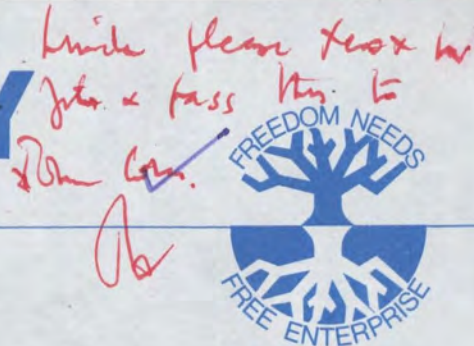 please xerox for
John & pass this to
Y
FREEDOM NEEDS
FREE ENTERPRISE